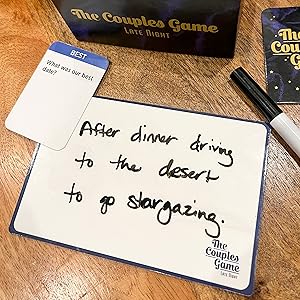 The Couples Game
Late Night
The
Couples
Game
BEST
What was our best
date?
After dinner driving
to the desert
to go stargazing.
The
Couples
Game
Late Night